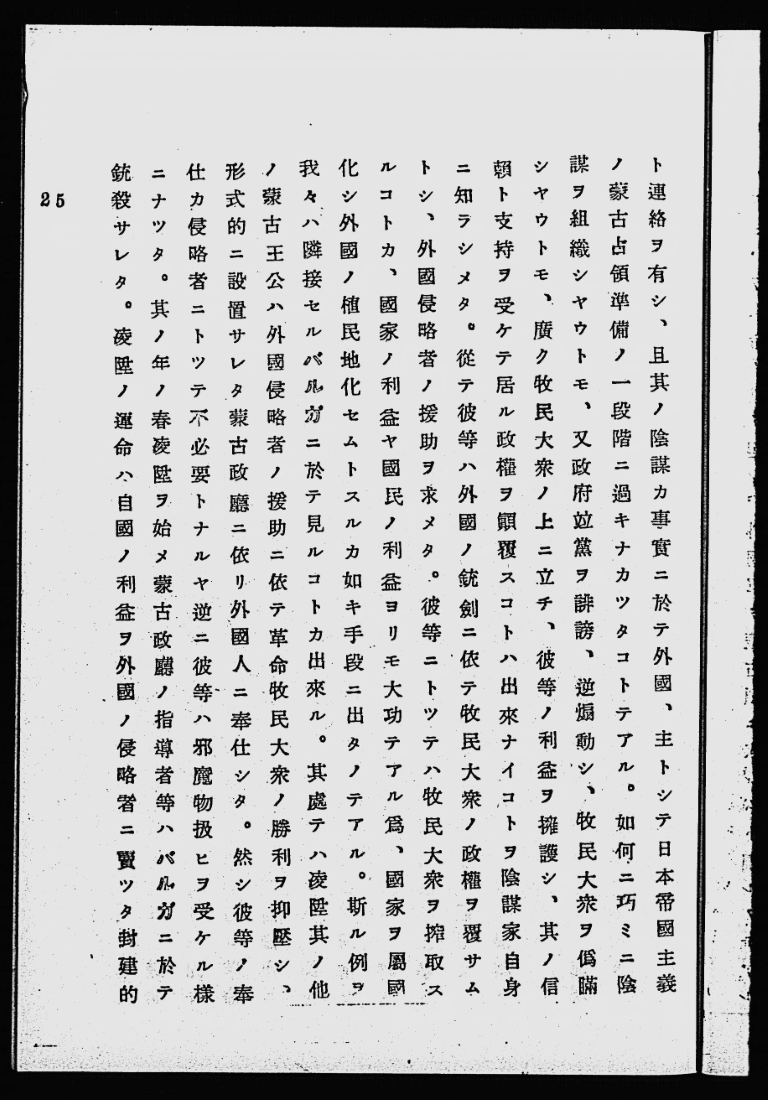 ト連絡ヲ有シ、且其ノ陰謀カ事實ニ於テ外國、主トシテ日本帝國主義
ノ蒙古占領準備ノ一段階ニ過キナカツタコトテアル。如何ニ巧ミニ陰
謀ヲ組織シヤウトモ、又政府竝黨ヲ誹謗、逆煽動シ、牧民大衆ヲ僞瞞
シヤウトモ、廣ク牧民大衆ノ上ニ立チ、彼等ノ利益ヲ擁護シ、其ノ信
頼ト支持ヲ受ケテ居ル政權ヲ顚覆スコトハ出來ナイコトヲ陰謀家自身
ニ知ラシメタ。從テ彼等ハ外國ノ銃劍ニ依テ牧民大衆ノ政權ヲ覆サム
トシ、外國侵略者ノ援助ヲ求メタ。彼等ニトツテハ牧民大衆ヲ搾取ス
ルコトカ、國家ノ利益ヤ國民ノ利益ヨリモ大功テアル爲、國家ヲ屬國
化シ外國ノ植民地化セムトスルカ如キ手段ニ出タノテアル。斯ル例ヲ
我々ハ隣接セルバルガニ於テ見ルコトカ出來ル。其處テハ凌陞其ノ他
ノ蒙古王公ハ外國侵略者ノ援助ニ依テ革命牧民大衆ノ勝利ヲ抑壓シ、
形式的ニ設置サレタ蒙古政廳ニ依リ外國人ニ奉仕シタ。然シ彼等ノ奉
仕カ侵略者ニトツテ不必要トナルヤ逆ニ彼等ハ邪魔物扱ヒヲ受ケル樣
ニナツタ。其ノ年ノ春凌陞ヲ始メ蒙古政廳ノ指導者等ハバルガニ於テ
銃殺サレタ。凌陞ノ運命ハ自國ノ利益ヲ外國ノ侵略者ニ賣ツタ封建的
25